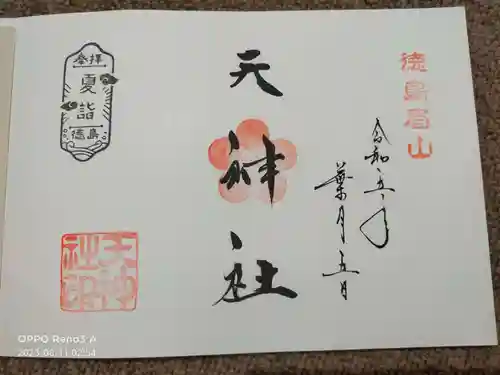 徳島眉山
令和五年
葉月五日
天神社
参拝
夏詣
徳島
天神社印
OPPO Reno3 A
2023.08.11 02:54